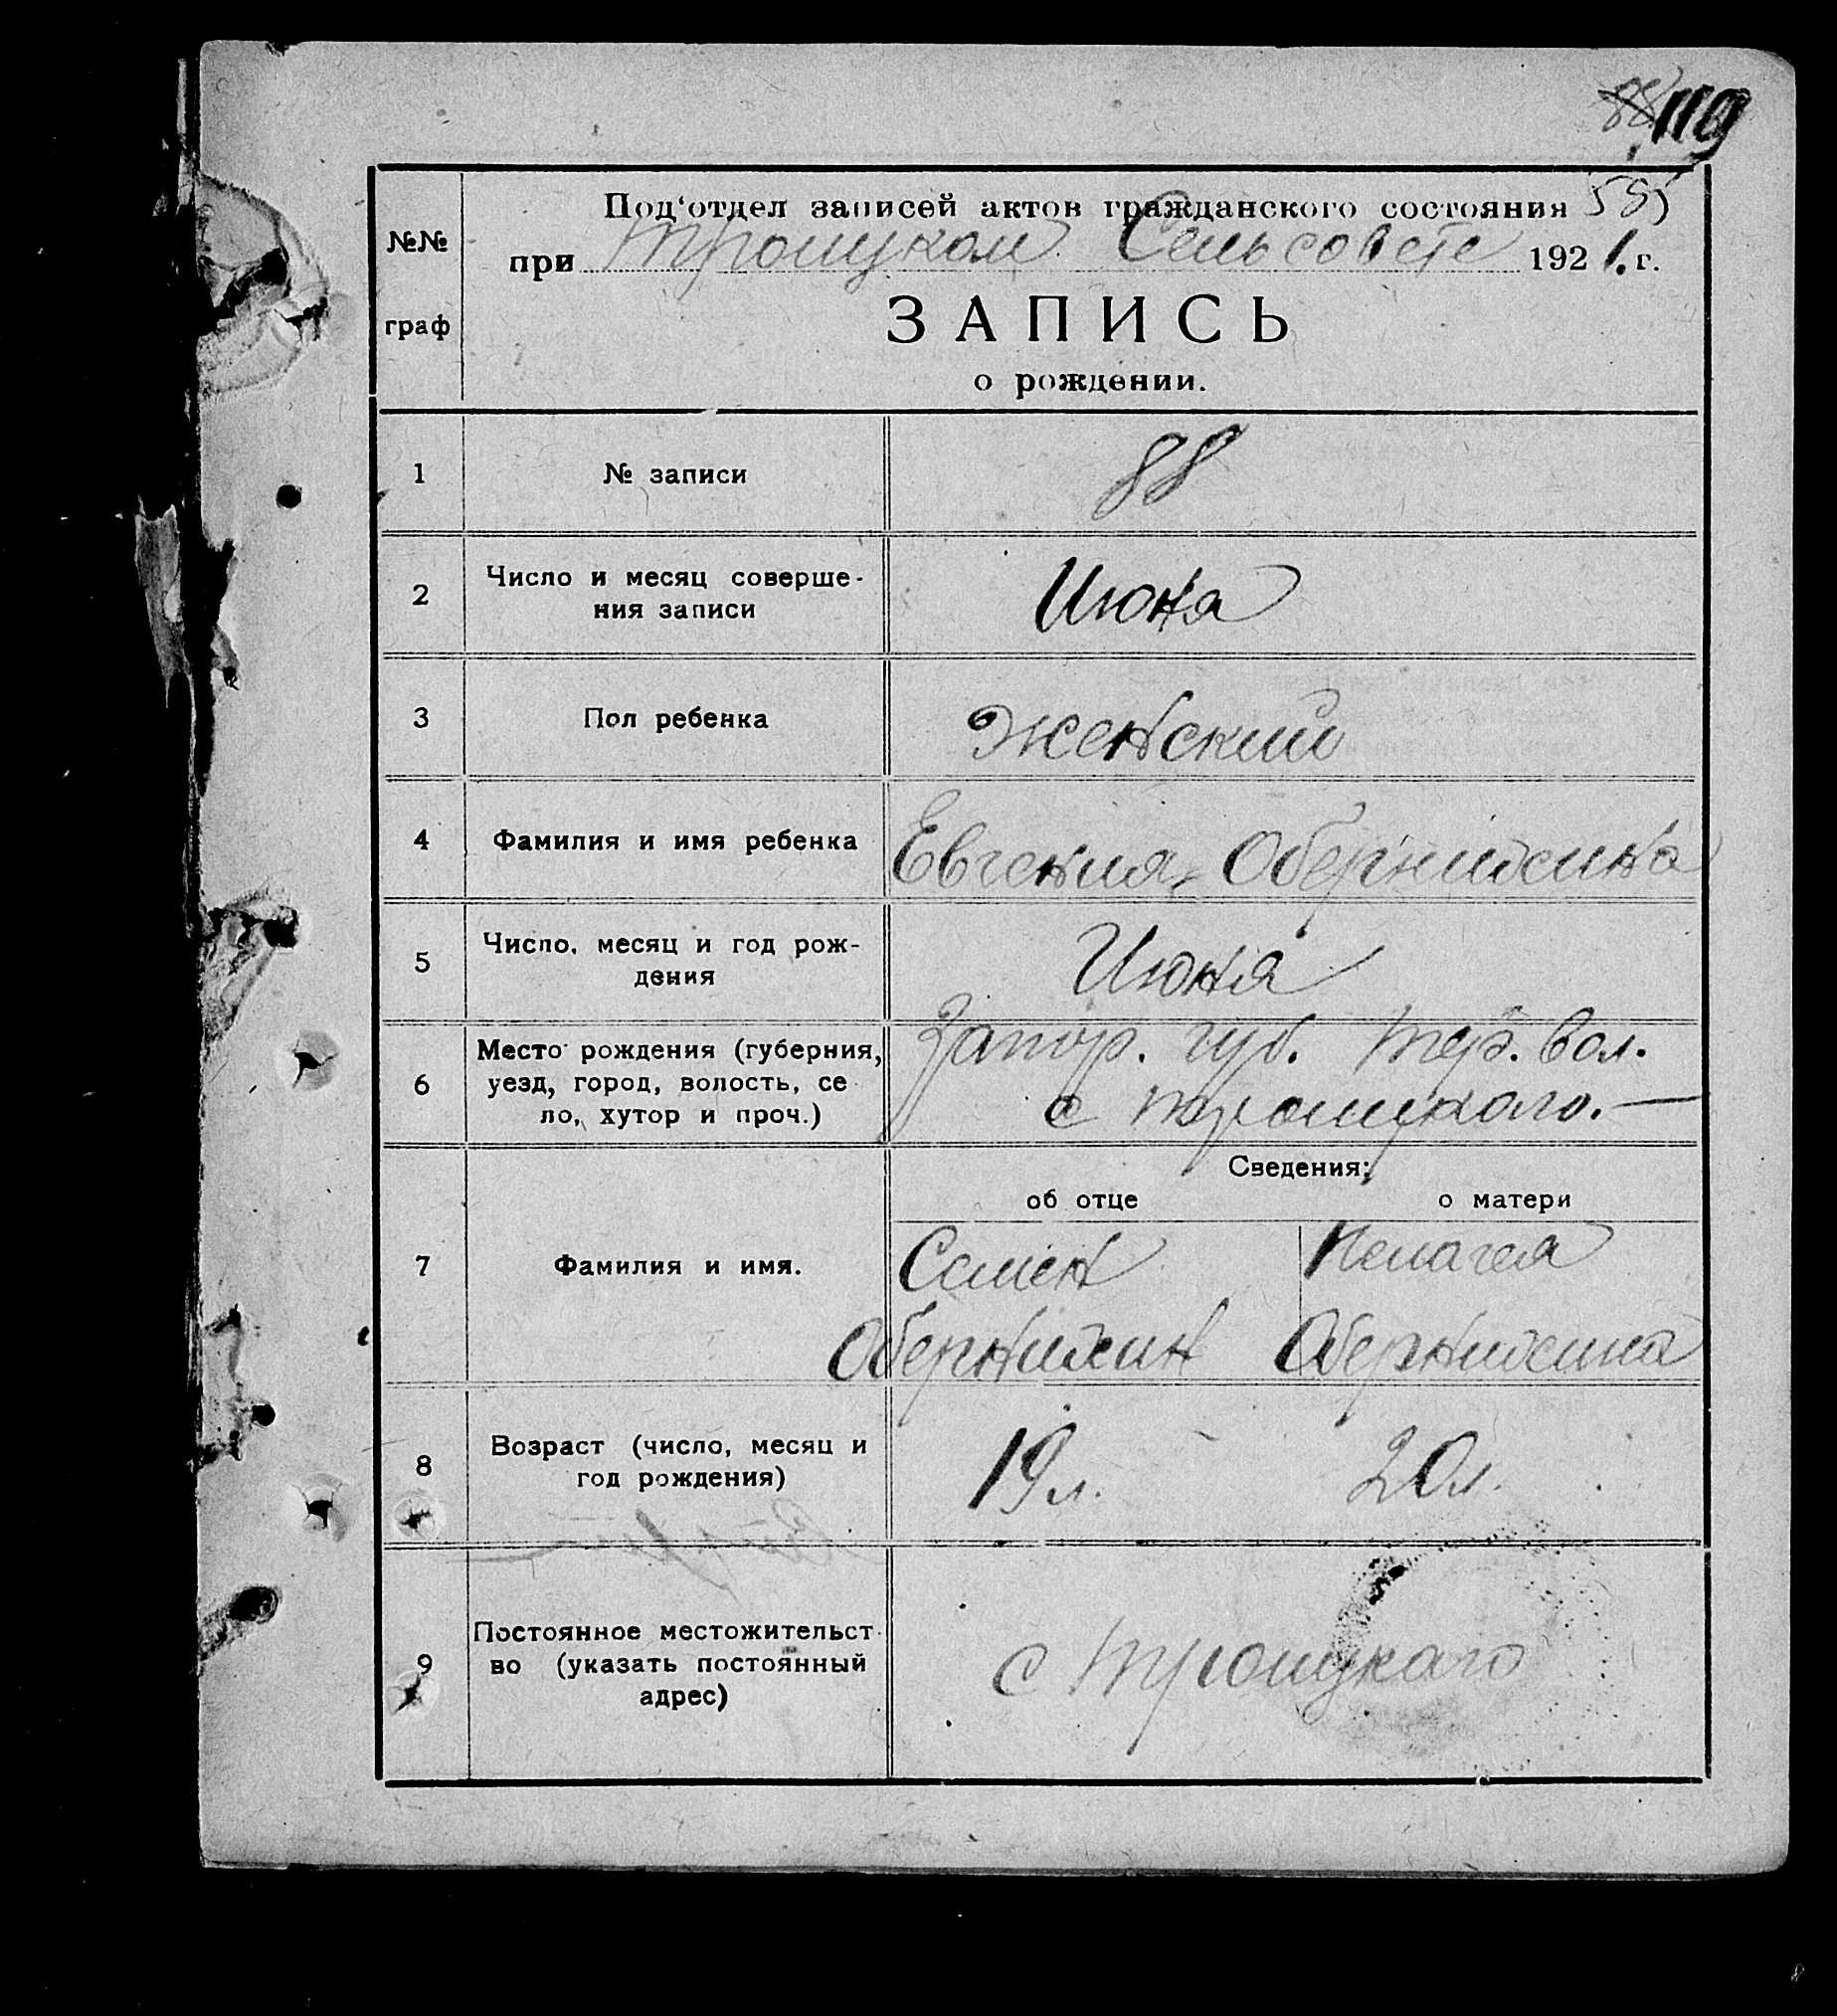 88 119
585
Под‘отдел записей актов гражданского состояния
при Троицком Сельсовете 1921. г.
№№
граф
ЗАПИСЬ
о рождении.
1 № записи 88
2 Число и месяц соверше-
ния записи Июня
3 Пол ребенка Женский
4 Фамилия и имя ребенка Евгения Обернихина
5 Число, месяц и год рож-
дения Июня
6 Место рождения (губерния,
уезд, город, волость, се
ло, хутор и проч.)
Запор. губ. Тер. вол.
с Троицкого.—
Сведения:
об отце о матери
7 Фамилия и имя.
Семен Пелагея
Обернихин Обернихина
8 Возраст (число, месяц и
год рождения)
19 л. 20 л.
9 Постоянное местожительст
во (указать постоянный
адрес)
с Троицкаго